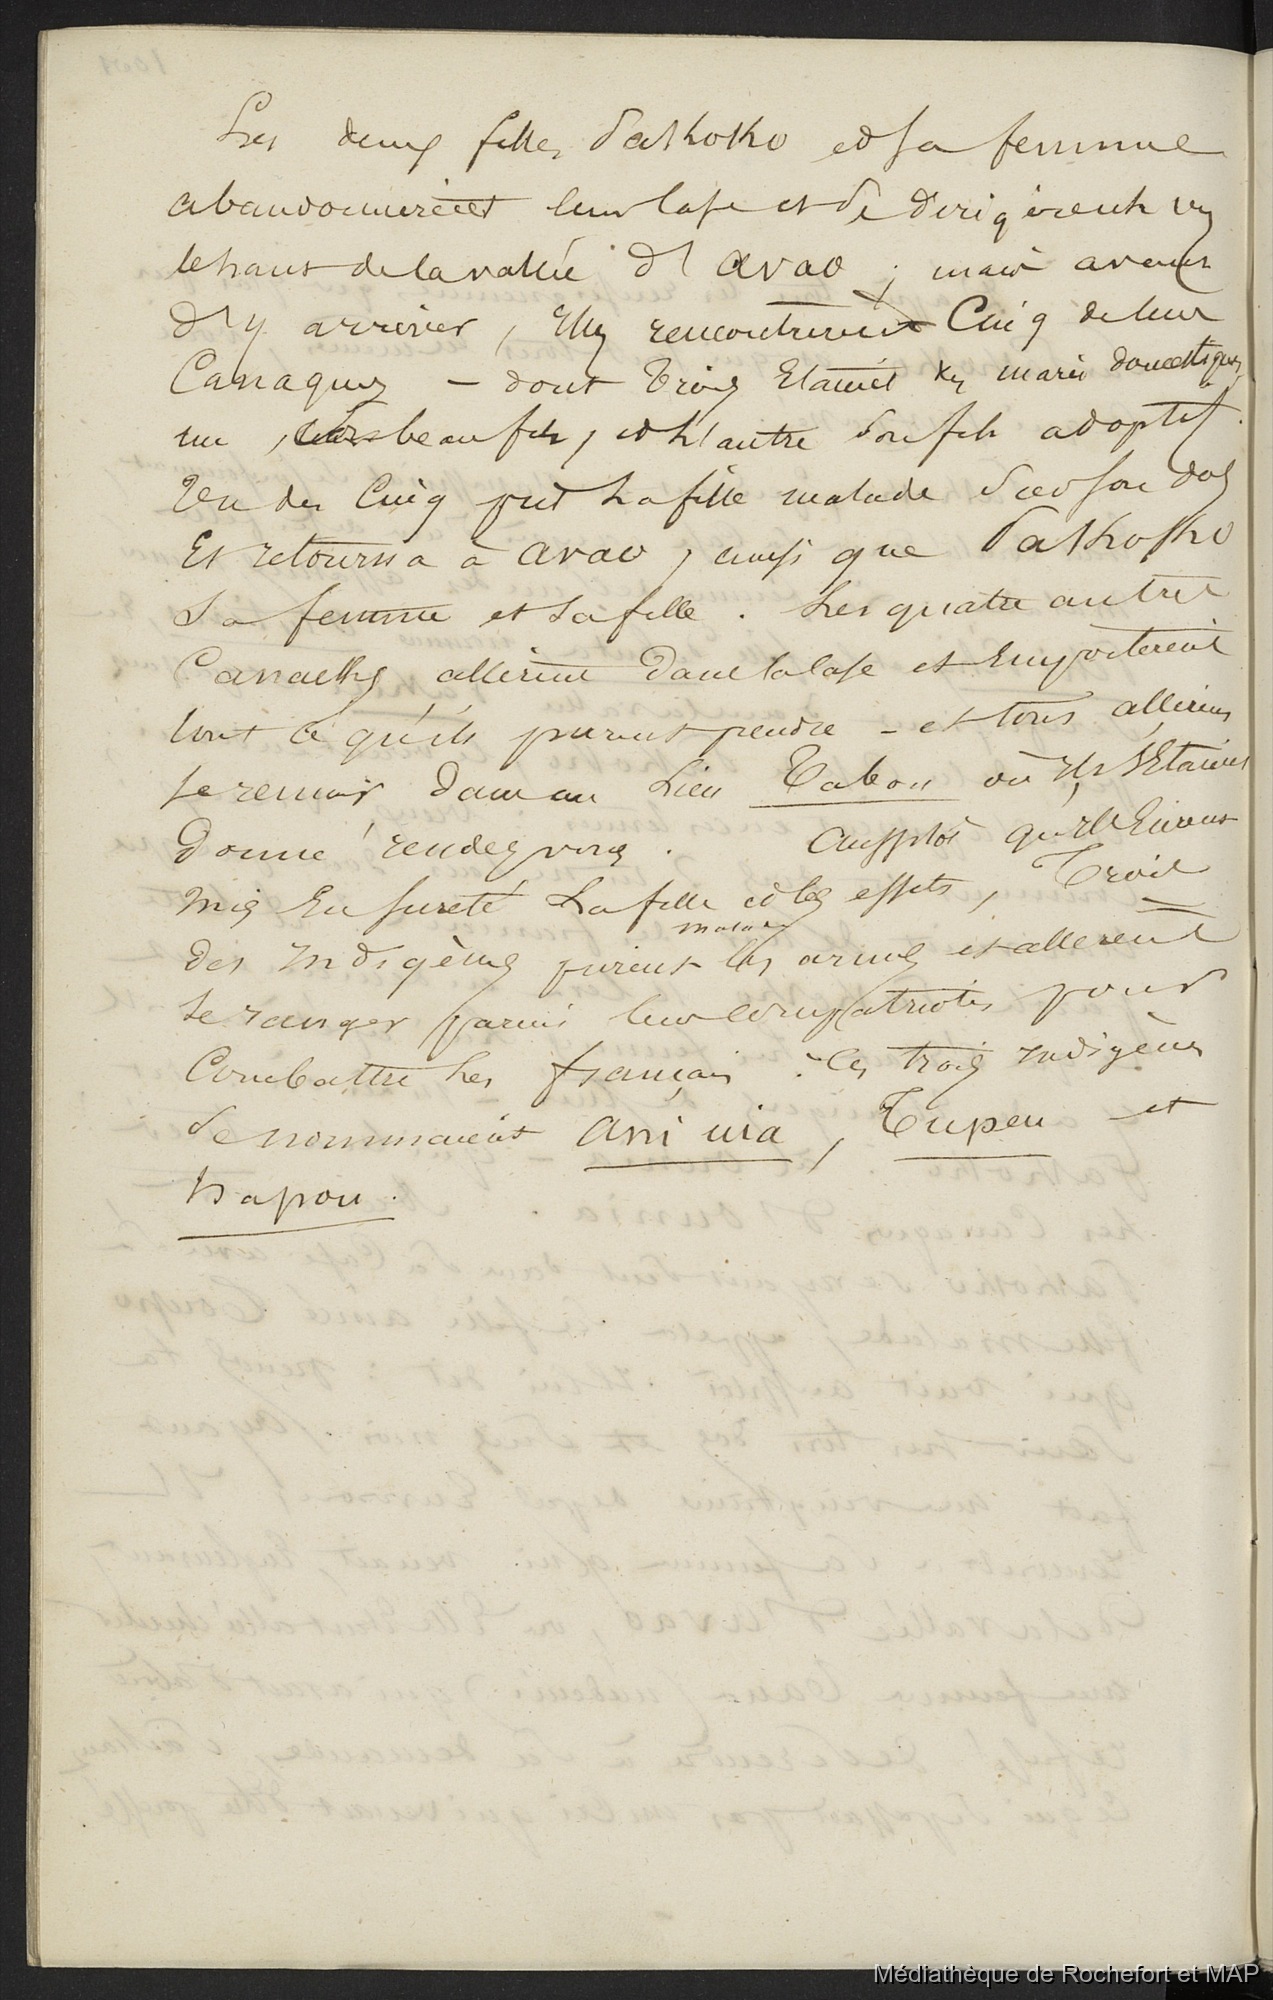 Les deux filles Pakoko et sa femme
abandonnèrent leur case et se dirigèrent vers
le haut de la vallée d'avao ; mais avant
d'y arriver, Elles rencontrèrent Cinq de leur
Canaques – dont Trois Etaient ses maris domestiques,
un, beau fils, et l'autre son fils adoptif.
Un des Cinq prit La fille malade sur son dos
Et retourna à avao, ainsi que Pakoko
Sa femme et sa fille. Les quatre autres
Canacks allèrent dans la Case et Emportèrent
tout ce qu'ils purent prendre – et tous allèrent
se réunir dans un Lieu Tabou où ils s'Etaient
Donné rendez vous. aussitôt qu'ils Eurent
mis En sureté La fille et les effets, Trois
des indigènes prirent les armes et allèrent
se ranger parmi leur compatriotes pour
Combattre les français : les trois indigènes
se nommaient ani nia, Tupeu et
hapou.
Médiathèque de Rochefort et MAP